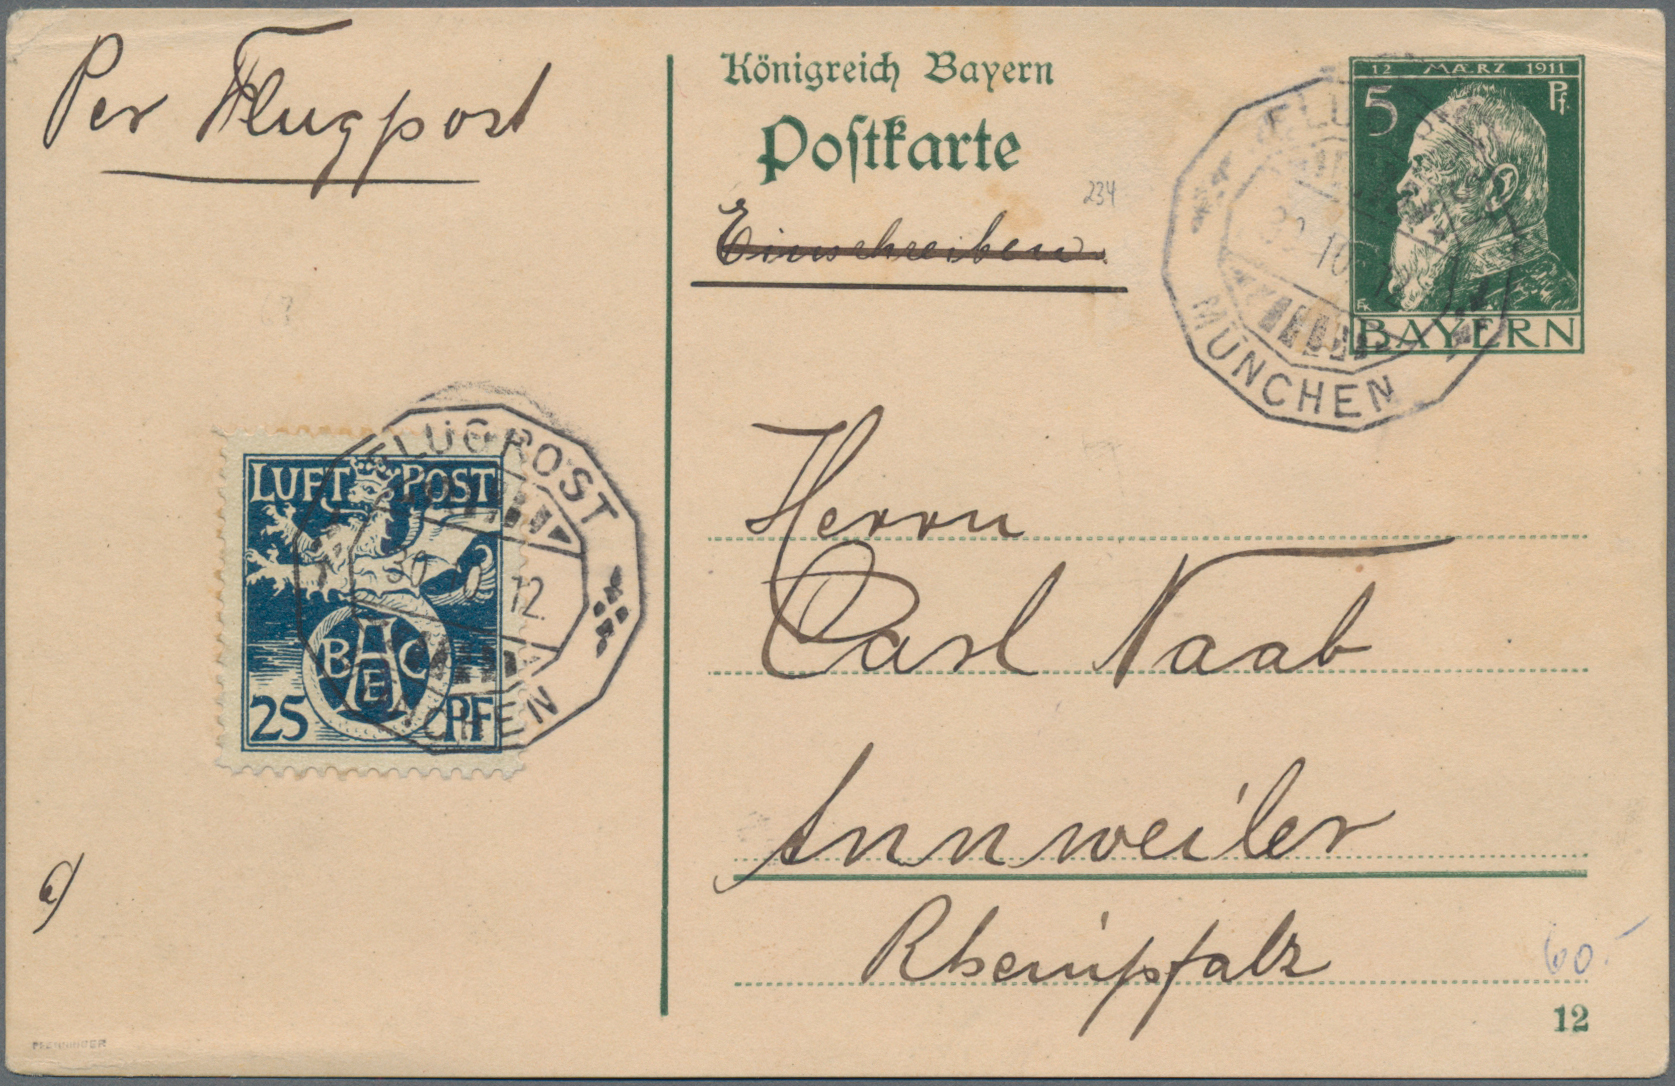 Per Flugpost
Königreich Bayern
Postkarte
234
Einschreiben.
12 MÆRZ 1911
5 Pf.
BAYERN
FLUGPOST
30 10 12
MÜNCHEN
LUFT POST
B A E C
25 PF
FLUGPOST
30 12
MÜNCHEN
Herrn
Carl Naab
Annweiler
Rheinpfalz
a)
60.-
12